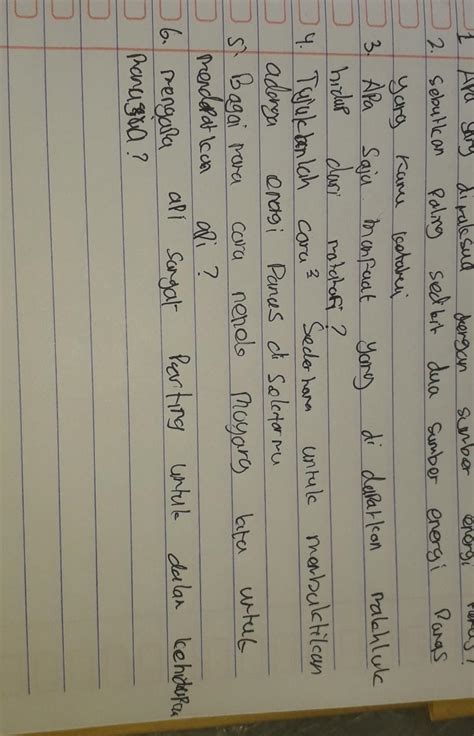 1 Apa yang dimaksud dengan sumber energi Panas?
2. Sebutkan paling sedikit dua sumber energi Panas
yang kamu ketahui
3. Apa saja manfaat yang di dapatkan makhluk
hidup dari matahari?
4. Tunjukanlah cara² Sederhana untuk membuktikan
adanya energi Panas di Sekitarmu
5. Bagai mana cara nenek moyang kita untuk
mendapatkan api?
6. mengapa api sangat Penting untuk dalam kehidupan
manusia?